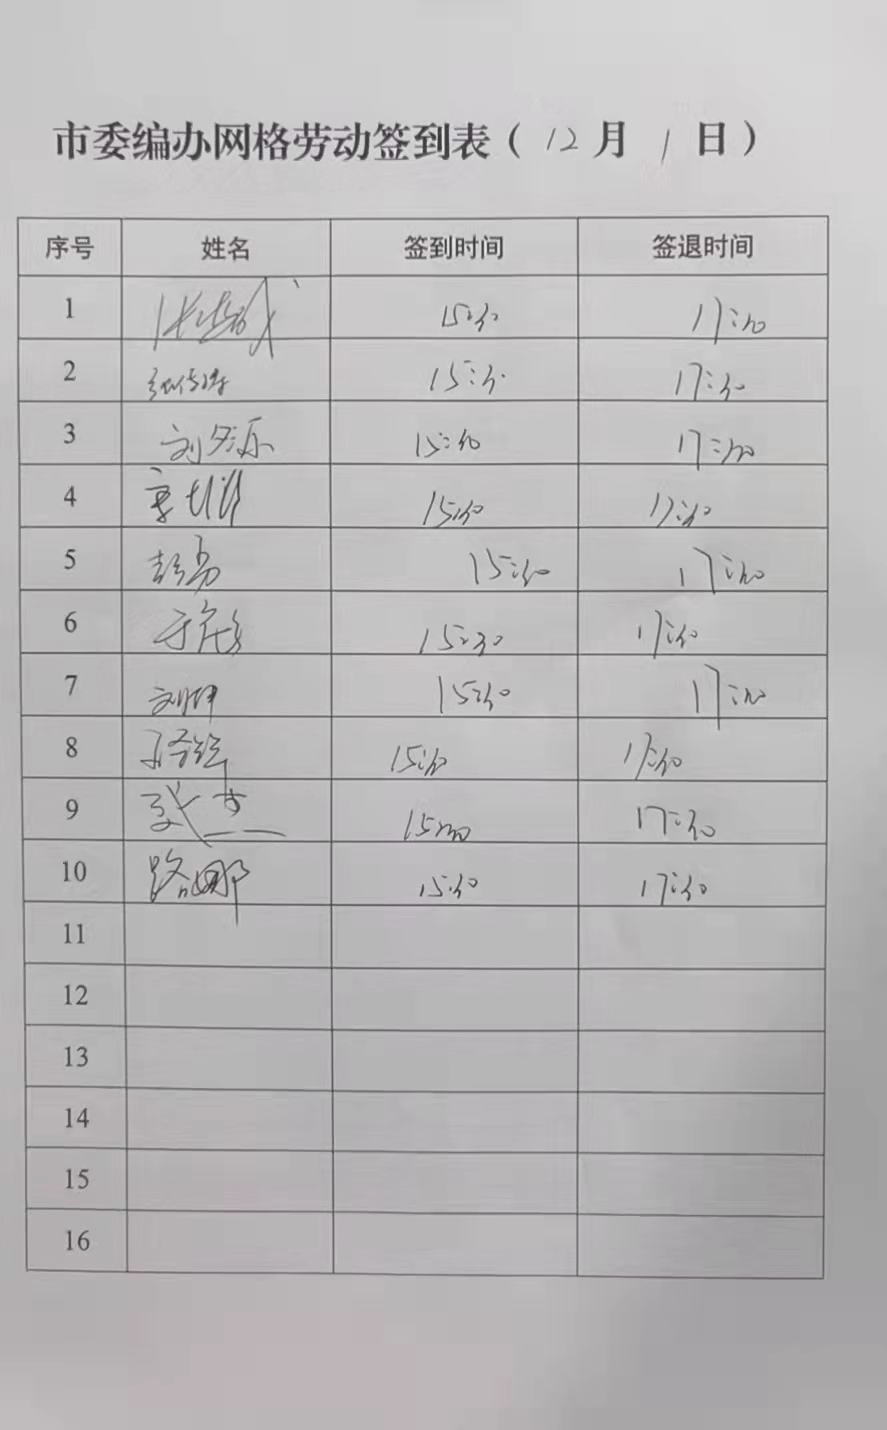 市委编办网格劳动签到表（12月1日）
序号 姓名 签到时间 签退时间
1 15:30 17:30
2 15:30 17:30
3 刘夕源 15:30 17:30
4 15:30 17:30
5 彭易 15:30 17:30
6 15:30 17:30
7 刘坤 15:30 17:30
8 15:30 17:30
9 15:30 17:30
10 路娜 15:30 17:30
11
12
13
14
15
16